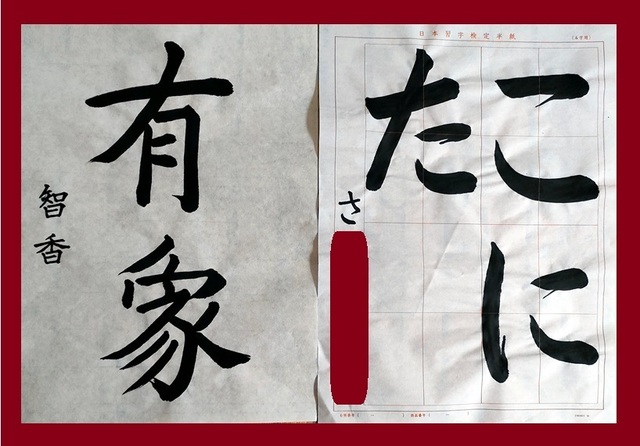 日本習字検定半紙
こに
た
さ
有象
智香